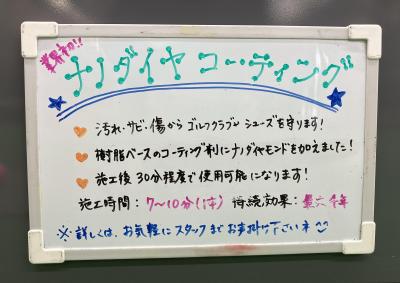 業界初!!
ナノダイヤ コーティング
汚れ・サビ・傷から ゴルフクラブ、シューズを守ります!
樹脂ベースのコーティング剤にナノダイヤモンドを加えました!
施工後 30分程度で使用可能になります!
施工時間:7~10分(1本) 持続効果:最大半年
※詳しくは、お気軽にスタッフまでお声掛け下さいネ